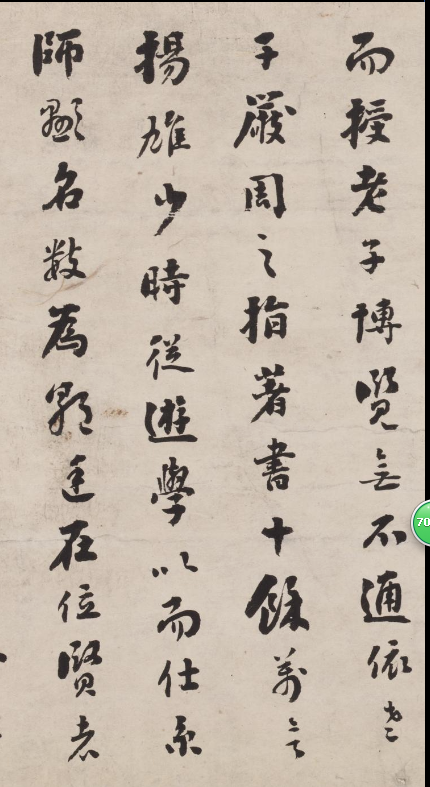 而授老子博覽無不通依老
子嚴周之指著書十餘萬言
揚雄少時從遊學以而仕京
師顯名數為朝廷在位賢者
70